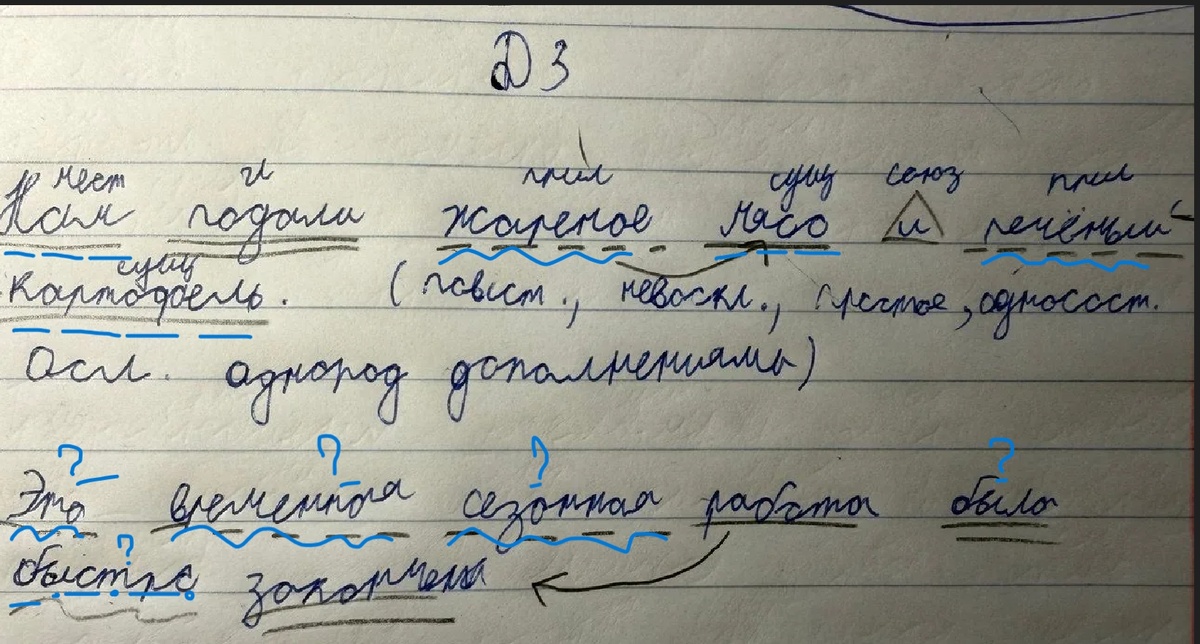 ДЗ
мест гл прил сущ союз прил
Нам подали жареное мясо и печёный
сущ
картофель. (повест., невоскл., простое, односост.
Осл. однород дополнениями)
? ? ? ?
Эта временная сезонная работа была
?
быстро закончена